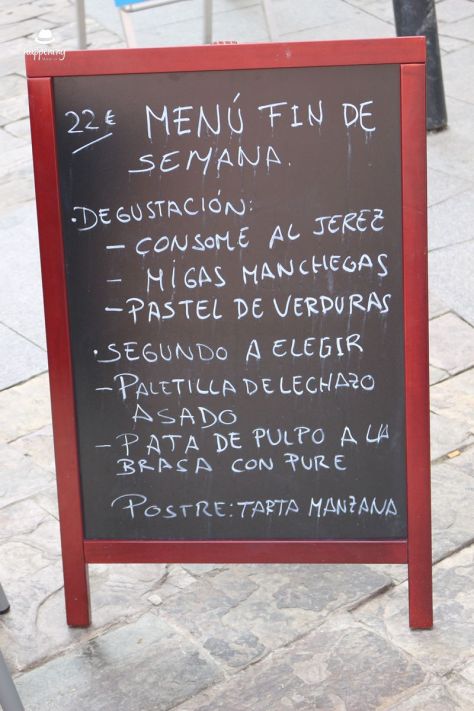 happening
22€ MENÚ FIN DE
SEMANA.
·DEGUSTACIÓN:
- CONSOME AL JEREZ
- MIGAS MANCHEGAS
- PASTEL DE VERDURAS
·SEGUNDO A ELEGIR
- PALETILLA DE LECHAZO
ASADO
- PATA DE PULPO A LA
BRASA CON PURE
POSTRE: TARTA MANZANA